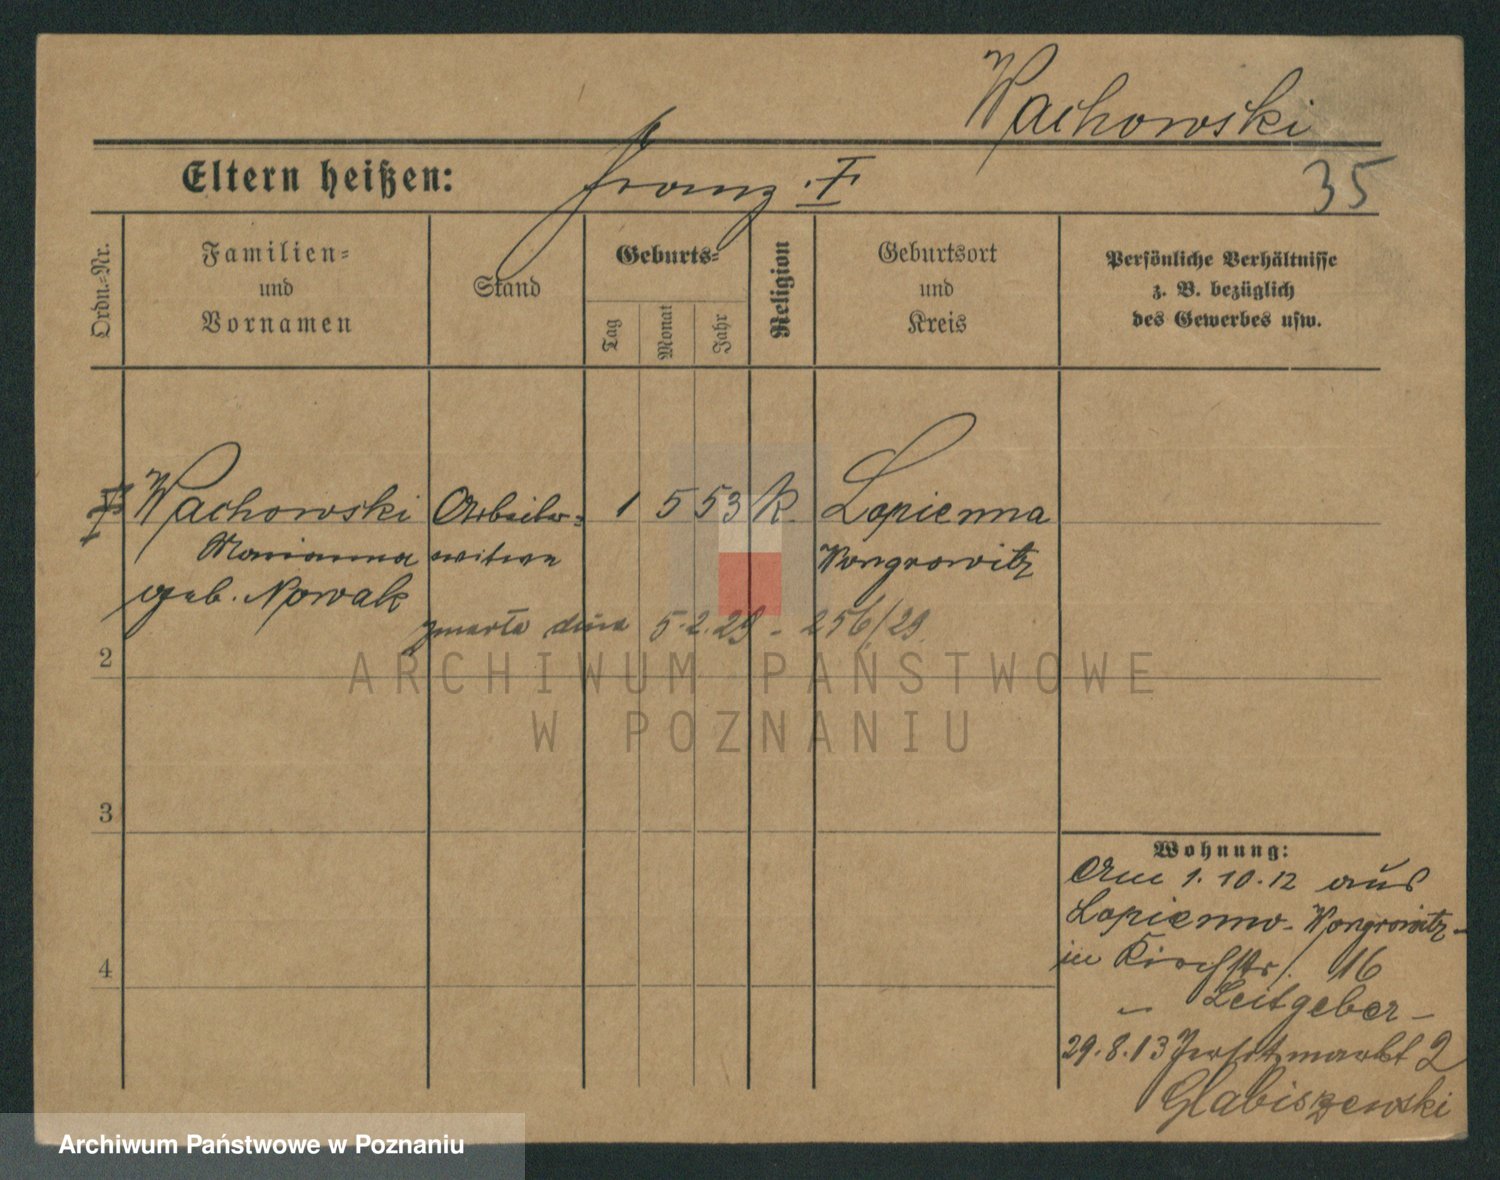 Wachowski
Eltern heißen: Franz I.
35
Ordn.-Nr.
Familien-
und
Vornamen
Stand
Geburts-
Tag
Monat
Jahr
Religion
Geburtsort
und
Kreis
Persönliche Verhältnisse
z. B. bezüglich
des Gewerbes usw.
Wachowski Arbeiter- 1 5 53 K. Lopienna
Marianna witwe Wongrowitz
geb. Nowak
zmarła dnia 5.2.29 - 256/29
2
ARCHIWUM PAŃSTWOWE
W POZNANIU
3
4
Wohnung:
Am 1.10.12 aus
Lopienno - Wongrowitz -
in Kirchstr. 16
- Leitgeber -
29.8.13 Jersitzmarkt 2
Glabiszewski
Archiwum Państwowe w Poznaniu